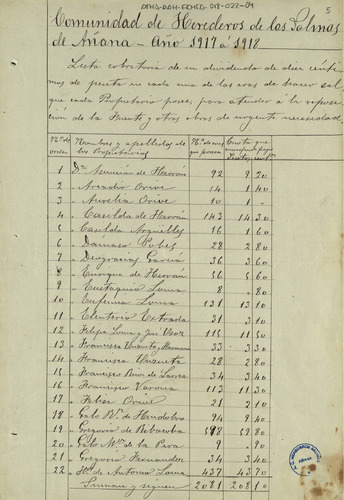 DFHS-DAH-ECHSG-018-022-04
5
Comunidad de Herederos de las Salinas
de Añana - Año 1917 á 1918
Lista cobratoria de un dividendo de diez cénti-
mos de peseta en cada una de las eras de hacer sal
que cada Propietario posee, para atender a la reposi-
ción de la Fuente y otras obras de urgente necesidad.
Nº de orden Nombres y apellidos de los Propietarios Nº de eras que poseen Cuota que Pesetas cents
1 Dª Asunción de Herrán 92 9 20
2 " Arcadio Orive 14 1 40
3 " Aurelia Orive 10 1 "
4 " Casilda de Herrán 143 14 30
5 " Casilda Argüelles 16 1 60
6 " Damaso Pobes 28 2 80
7 " Deogracias García 36 3 60
8 " Enrique de Herrán 56 5 60
9 " Eustaquio Loma 8 " 80
10 " Eufemia Loma 131 13 10
11 " Eleuterio Estrada 31 3 10
12 " Felipe Loma y José 115 11 50
13 " Francisca 33 3 30
14 " Francisca Unzueta 28 2 80
15 " Francisco Ruiz de Larrea 34 3 40
16 " Francisco Varona 113 11 30
17 " Felisa Orive 21 2 10
18 " Galo de 94 9 40
19 " Gregorio de Ribacoba 598 59 80
20 " Galo Mª de la Pera 9 " 90
21 " Gregorio Fernandez 34 3 40
22 " de Antonio Loma 437 43 70
Suman y siguen 2081 208 10
AÑANA